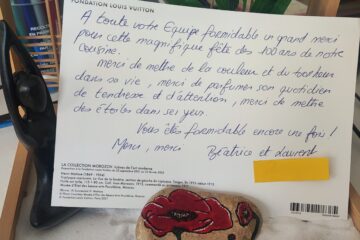 FONDATION LOUIS VUITTON
A toute votre Equipe formidable un grand merci
pour cette magnifique fête des 100 ans de notre
cousine.
merci de mettre de la couleur et du bonheur
dans sa vie, merci de parfumer son quotidien
de tendresse et d'attention, merci de mettre
des étoiles dans ses yeux.
Vous êtes formidable encore une fois !
Merci, merci
Béatrice et Laurent
LA COLLECTION MOROZOV
Henri Matisse (1869 - 1954)